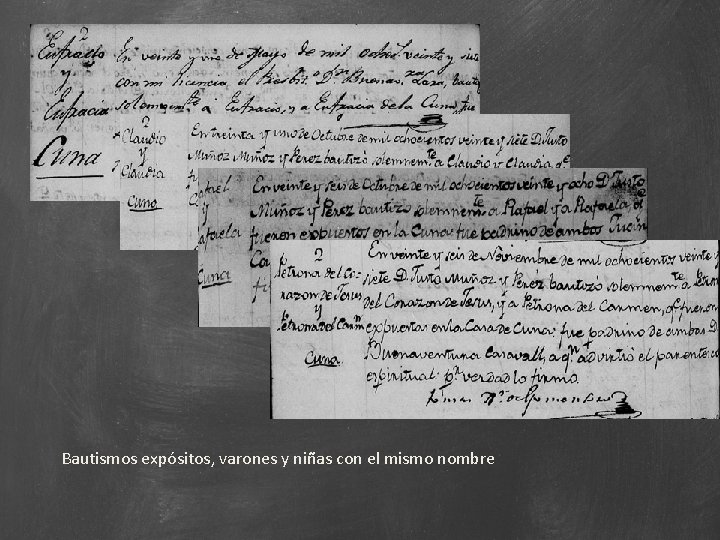 Eufracio
2
y
Eufracia
Cuna
En veinte y uno de Mayo de mil ochos. veinte y siete
con mi licencia el Presb. D. Buenav.ra Lara, bautizo
solemnm.te a Eufracio, y a Eufracia de la Cuna, fue
Claudio
2
y
Claudia
Cuna
En treinta y uno de Octubre de mil ochocientos veinte y siete D. Tusto
Muñoz Muñoz y Perez bautizo, solemnem.te a Claudio y Claudia q.e
Rafael
y
Rafaela
Cuna
En veinte y seis de Octubre de mil ochocientos veinte y ocho D. Tusto
Muñoz y Perez bautizo solemnem.te a Rafael y a Rafaela q.e
fueron expuestos en la Cuna: fue padrino de ambos
Petrona del Co-
2
razon de Jesus
y
Petrona del Carmn
Cuna
En veinte y seis de Noviembre de mil ochocientos veinte y
siete D. Tusto Muñoz y Perez bautizó solemnem.te a Petrona
del Corazon de Jesus, y a Petrona del Carmen, q.e fueron
expuestas en la Casa de Cuna: fue padrino de ambas D.
Buenaventura Casavall, a q.n advirtió el parentesco
espiritual: p.r verdad lo firmo.
Bautismos expósitos, varones y niñas con el mismo nombre